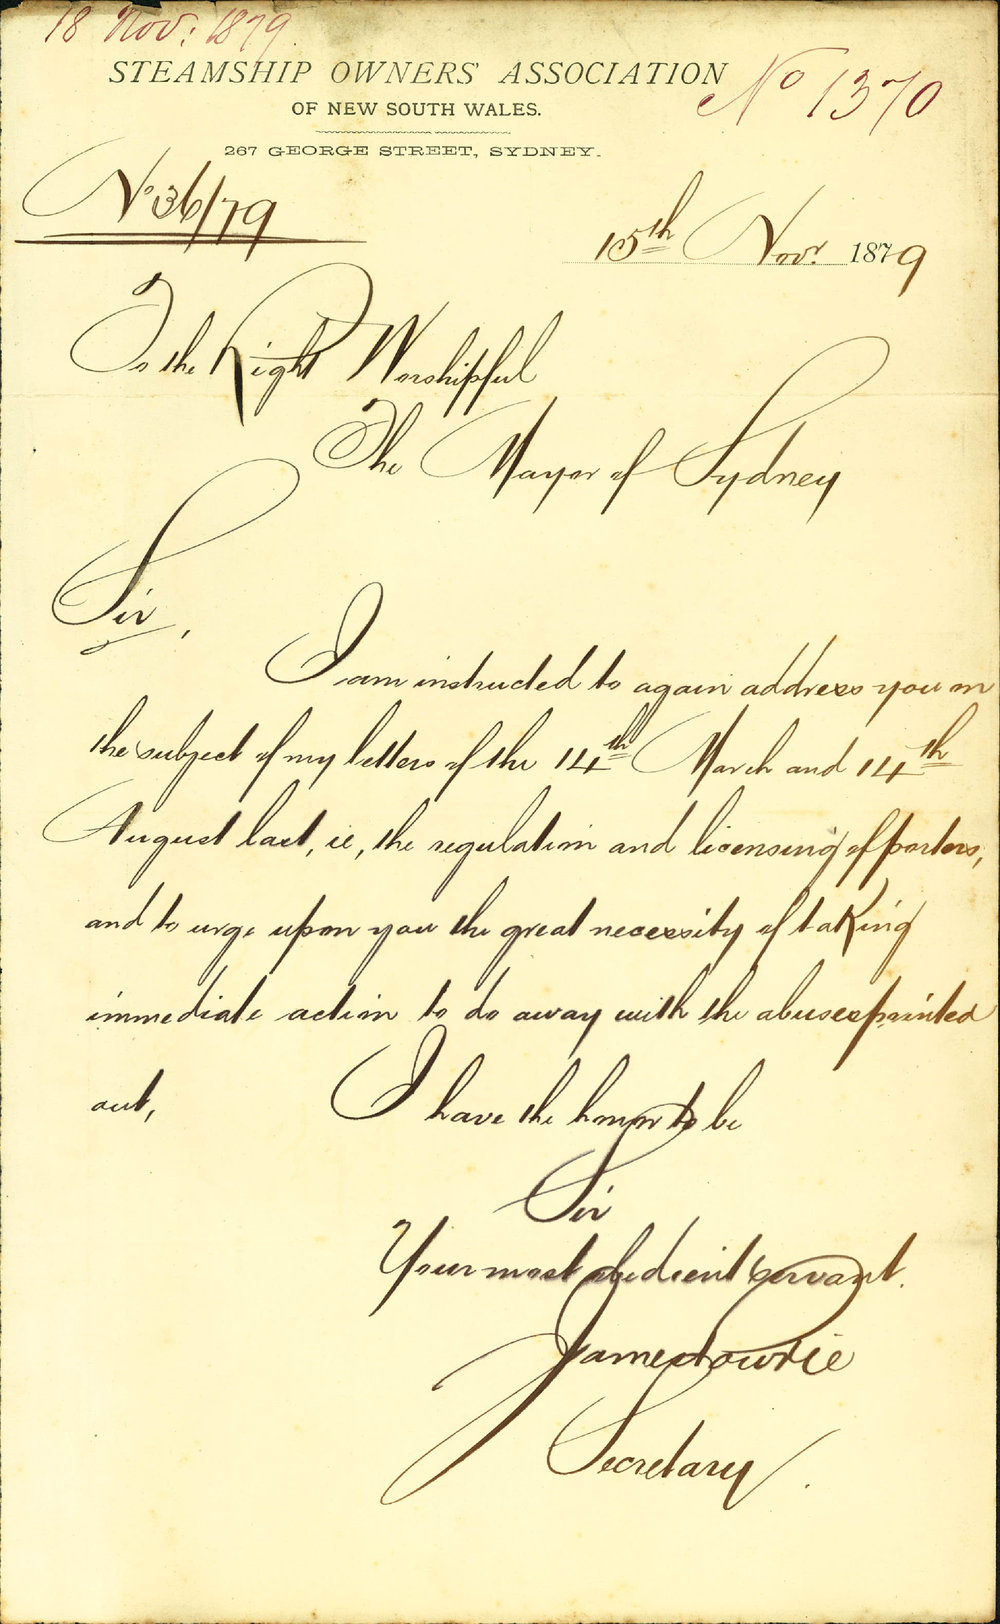 18 Nov: 1879.
STEAMSHIP OWNERS' ASSOCIATION
No 1370
OF NEW SOUTH WALES.
267 GEORGE STREET, SYDNEY.
No 36/79
15th Novr. 1879
To the Right Worshipful
The Mayor of Sydney
Sir,
I am instructed to again address you on
the subject of my letters of the 14th March and 14th
August last, ie, the regulation and licensing of porters,
and to urge upon you the great necessity of taking
immediate action to do away with the abuses pointed
out,
I have the honor to be
Sir
Your most obedient servant.
James Lowrie
Secretary.